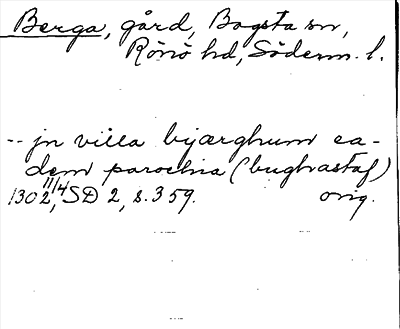 Berga, gård, Bogsta sn,
Rönö hd, Söderm. l.
-- jn villa bjærghum ea-
dem parochia (bughastaf)
1302 11/4, SD 2, s. 359. orig.